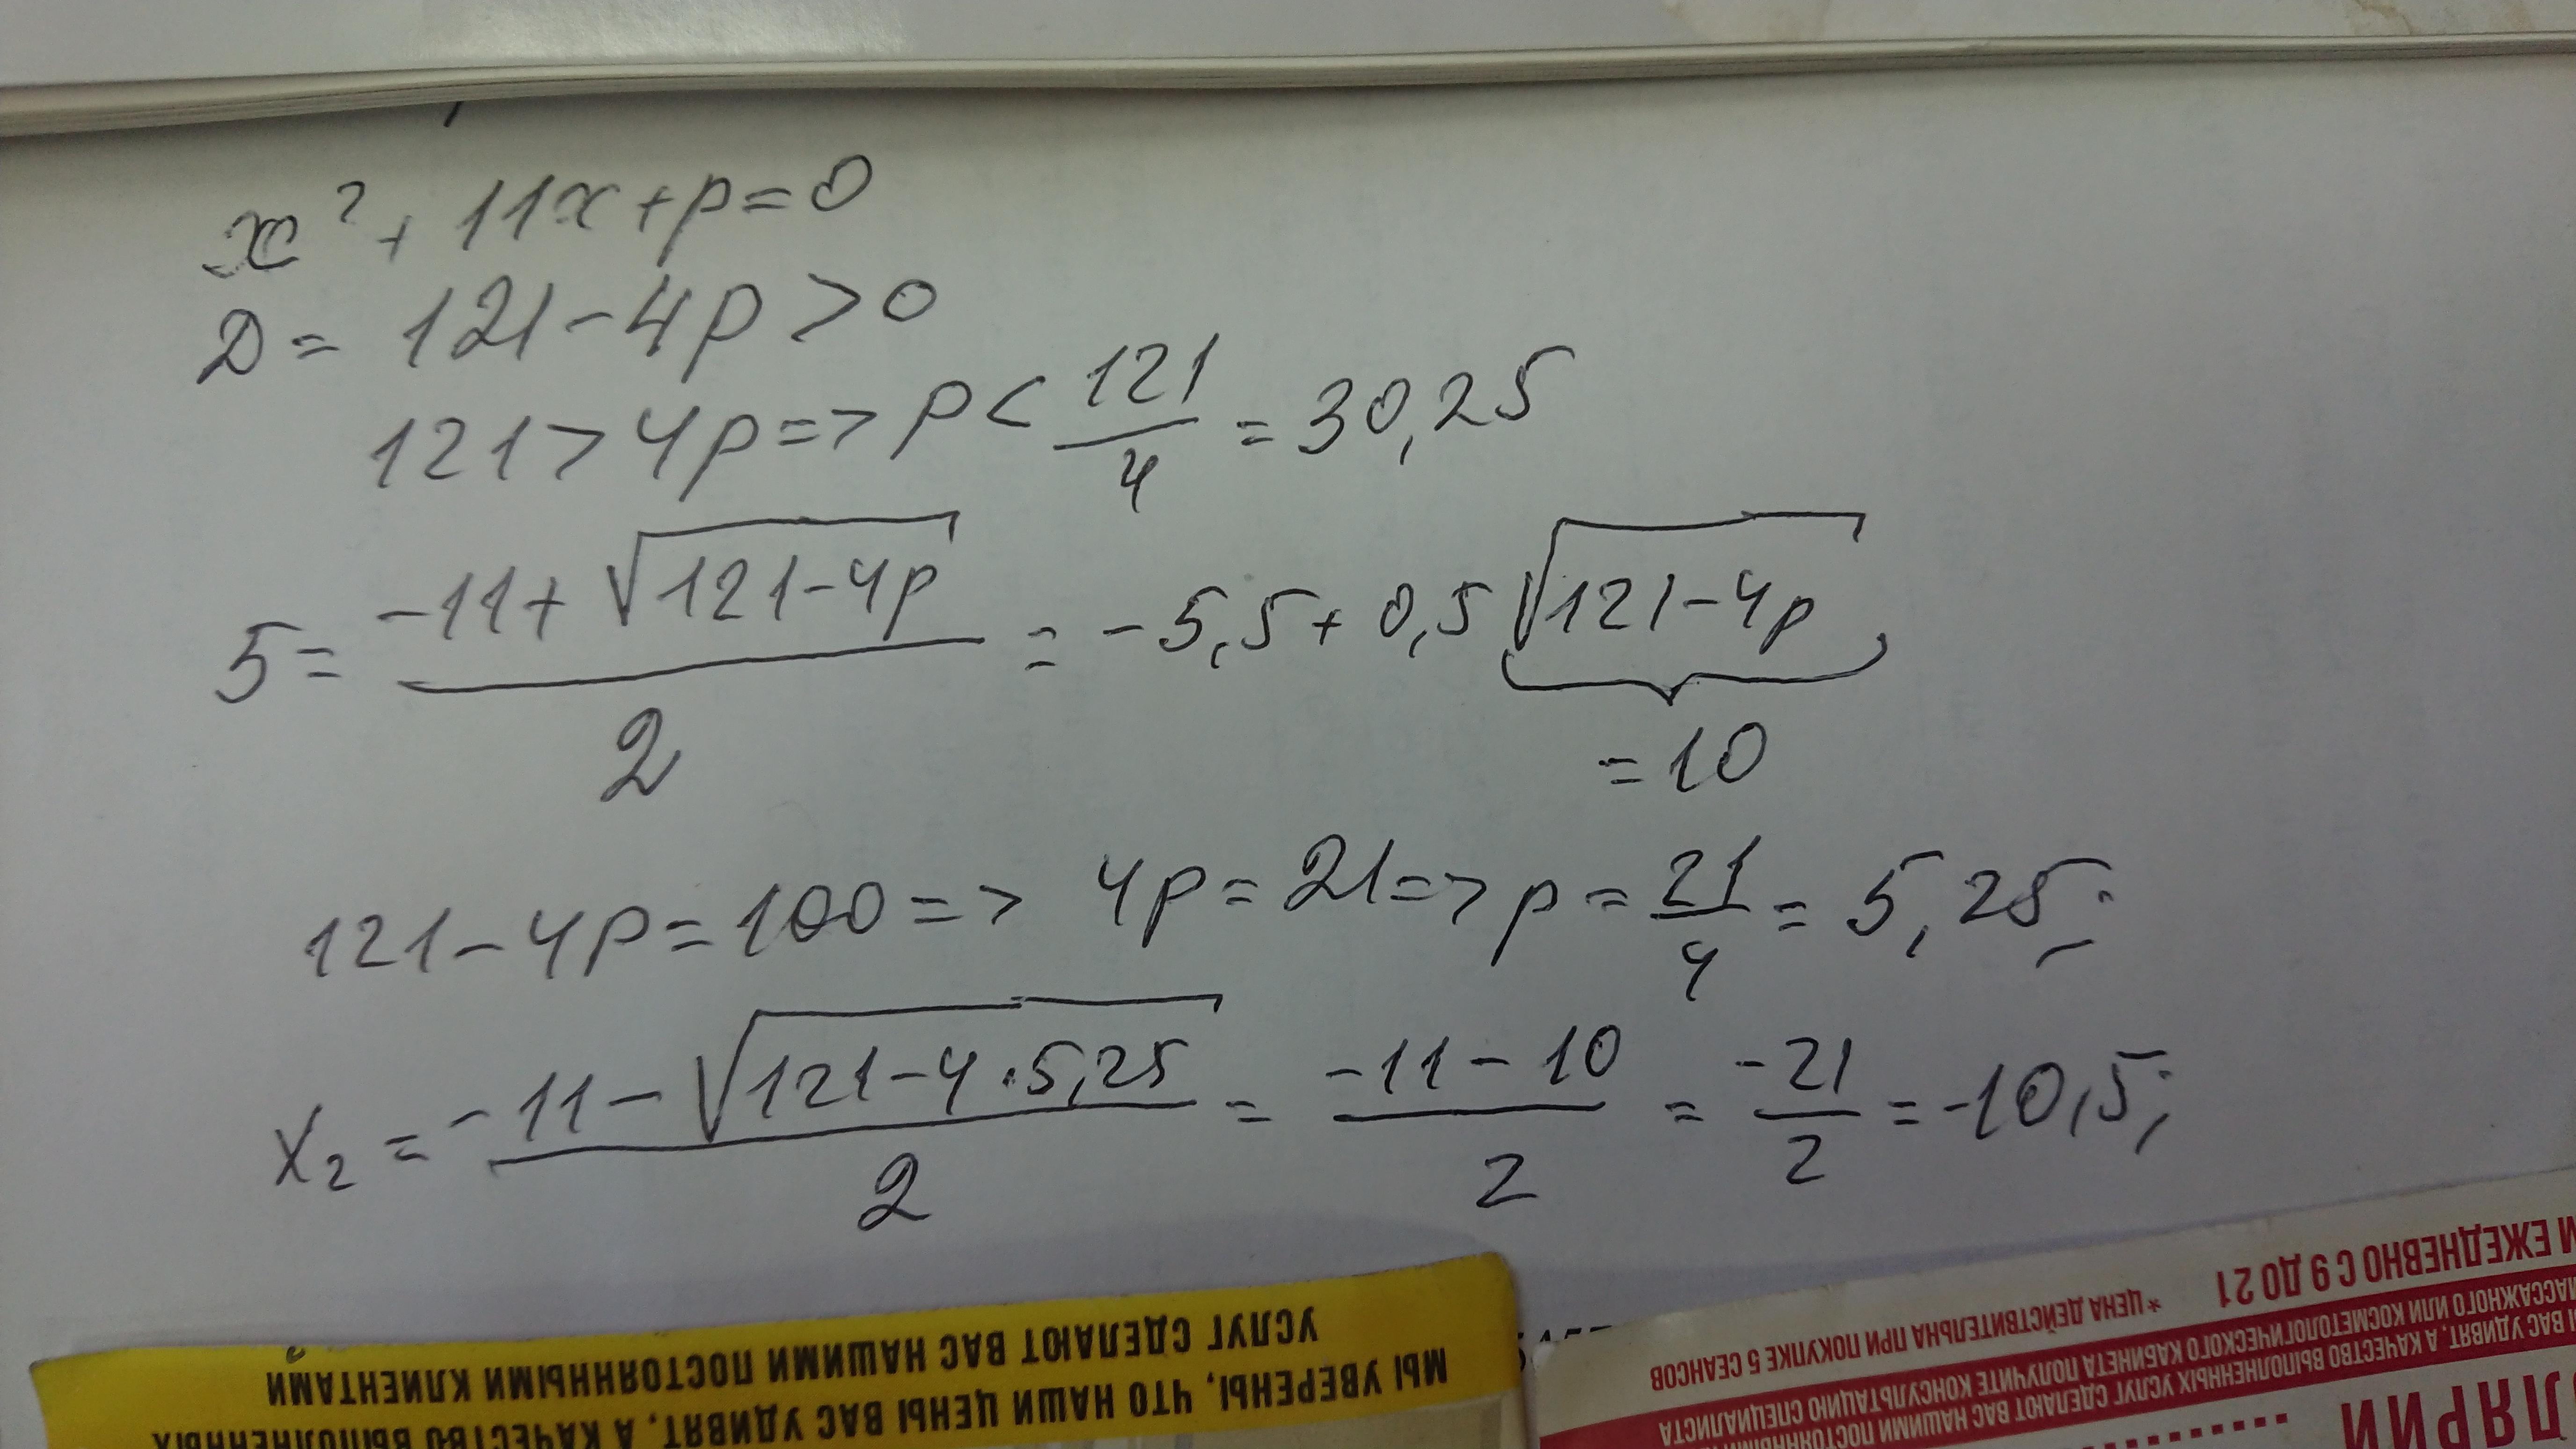 x² + 11x + p = 0
D = 121 - 4p > 0
121 > 4p => p < 121/4 = 30,25
5 = (-11 + √(121 - 4p))/2 = -5,5 + 0,5 √(121 - 4p)
= 10
121 - 4p = 100 => 4p = 21 => p = 21/4 = 5,25;
x₂ = (-11 - √(121 - 4 · 5,25))/2 = (-11 - 10)/2 = -21/2 = -10,5;
МЫ УВЕРЕНЫ, ЧТО НАШИ ЦЕНЫ ВАС УДИВЯТ, А КАЧЕСТВО ВЫПОЛНЕННЫХ
УСЛУГ СДЕЛАЮТ ВАС НАШИМИ ПОСТОЯННЫМИ КЛИЕНТАМИ
ЛЯРИЙ
ВАС УДИВЯТ, А КАЧЕСТВО ВЫПОЛНЕННЫХ УСЛУГ СДЕЛАЮТ ВАС НАШИМИ
МАССАЖНОГО ИЛИ КОСМЕТОЛОГИЧЕСКОГО КАБИНЕТА ПОЛУЧИТЕ КОНСУЛЬТАЦИЮ СПЕЦИАЛИСТА
*ЦЕНА ДЕЙСТВИТЕЛЬНА ПРИ ПОКУПКЕ 5 СЕАНСОВ
ЕЖЕДНЕВНО С 9 ДО 21